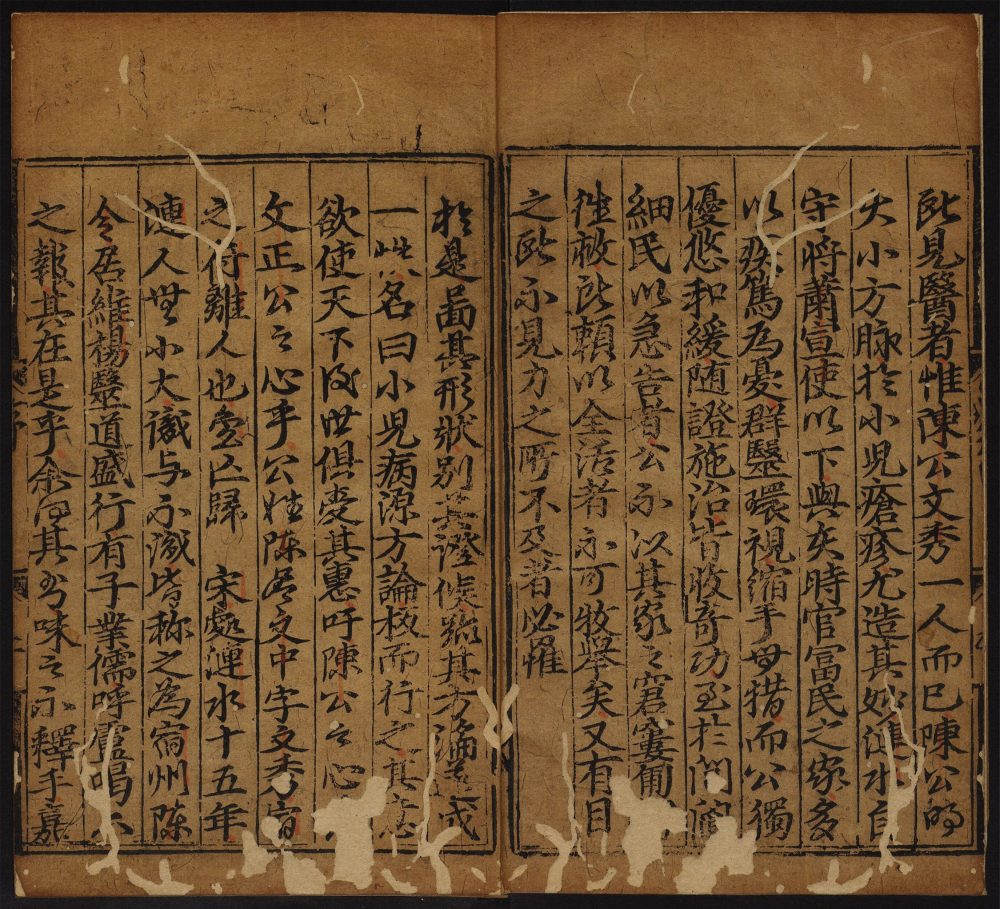 所見醫者惟陳公文秀一人而已陳公明
大小方脉扵小児瘡疹尤造其妙漣水自
守將蕭宣使以下與夫時官冨民之家多
以疾篤為憂群醫環視縮手毋措而公獨
優悠和緩随證施治皆收竒功至扵閭閻
細民以急告者公亦以其家之窘窶匍
徃救所頼以全活者亦可枚舉矣又有目
之所不見力之所不及者必惟
扵是畾其形状别其證候䟽其方論成
一帙名曰小児病源方論板而行之其意
欲使天下後世俱受其惠吁陳公之心
文正公之心乎公姓陳名文中字文秀宿
之符離人也金亡歸 宋處漣水十五年
漣人無小大識与不識皆称之為宿州陳
令居維楊醫道盛行有子業儒呼盧喝
之報其在是乎余得其書味之不釋手嘉